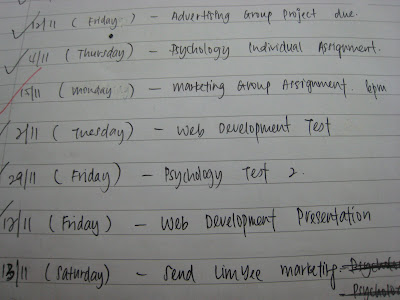 12/11 (Friday) - Advertising Group Project due.
4/11 (Thursday) - Psychology Individual Assignment.
15/11 (monday) - marketing Group Assignment. 6pm
2/11 (Tuesday) - Web Development Test
29/11 (Friday) - Psychology Test 2.
12/11 (Friday) - Web Development Presentation
13/11 (Saturday) - Send LimYee marketing.